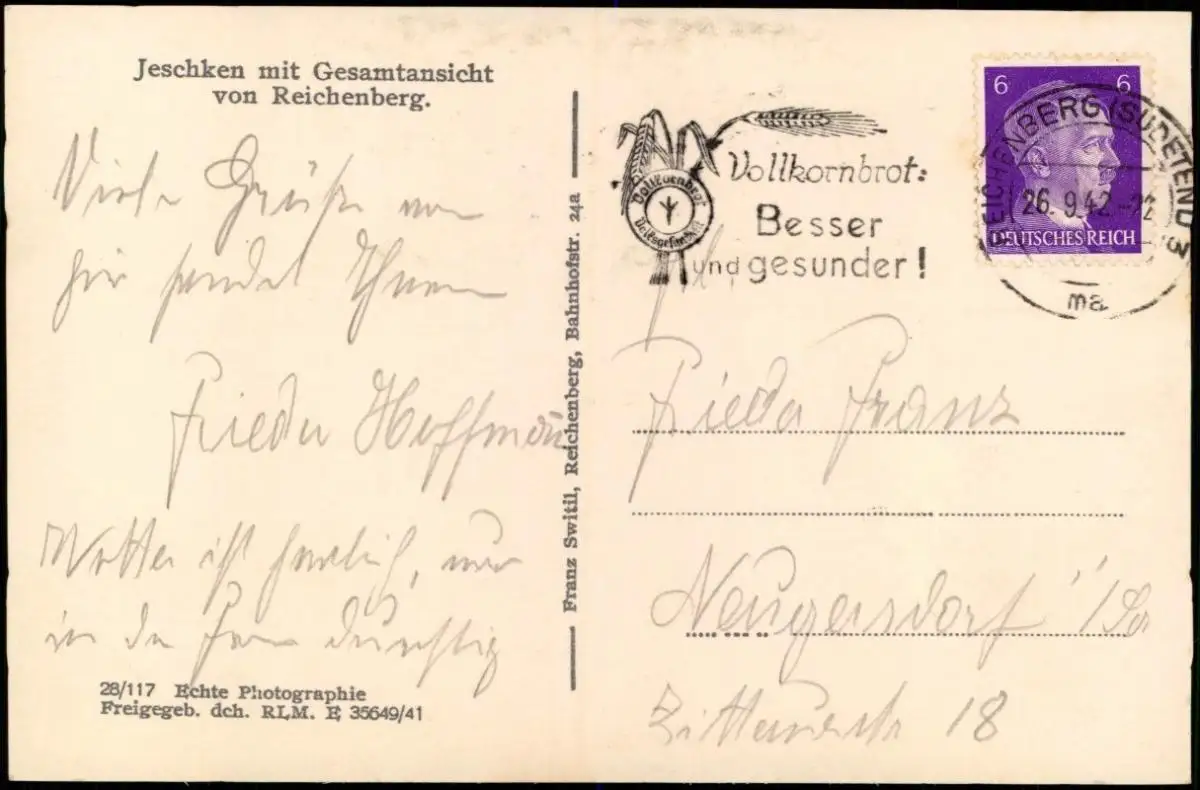 Jeschken mit Gesamtansicht
von Reichenberg.
Viele Grüße von
hier sendet Ihnen
Frieda Hoffman
Wetter ist herrlich, nur
in der Fern dunstig
28/117 Echte Photographie
Freigegeb. dch. RLM. E 35649/41
Franz Switil, Reichenberg, Bahnhofstr. 24a
Vollkornbrot
Vollkornbrot:
Besser
und gesunder!
6 6
DEUTSCHES REICH
REICHENBERG (SUDETENL) 3
26.9.42-22
ma
Frl.
Frieda Franz
Neugersdorf i/Sa
Zittauerstr 18